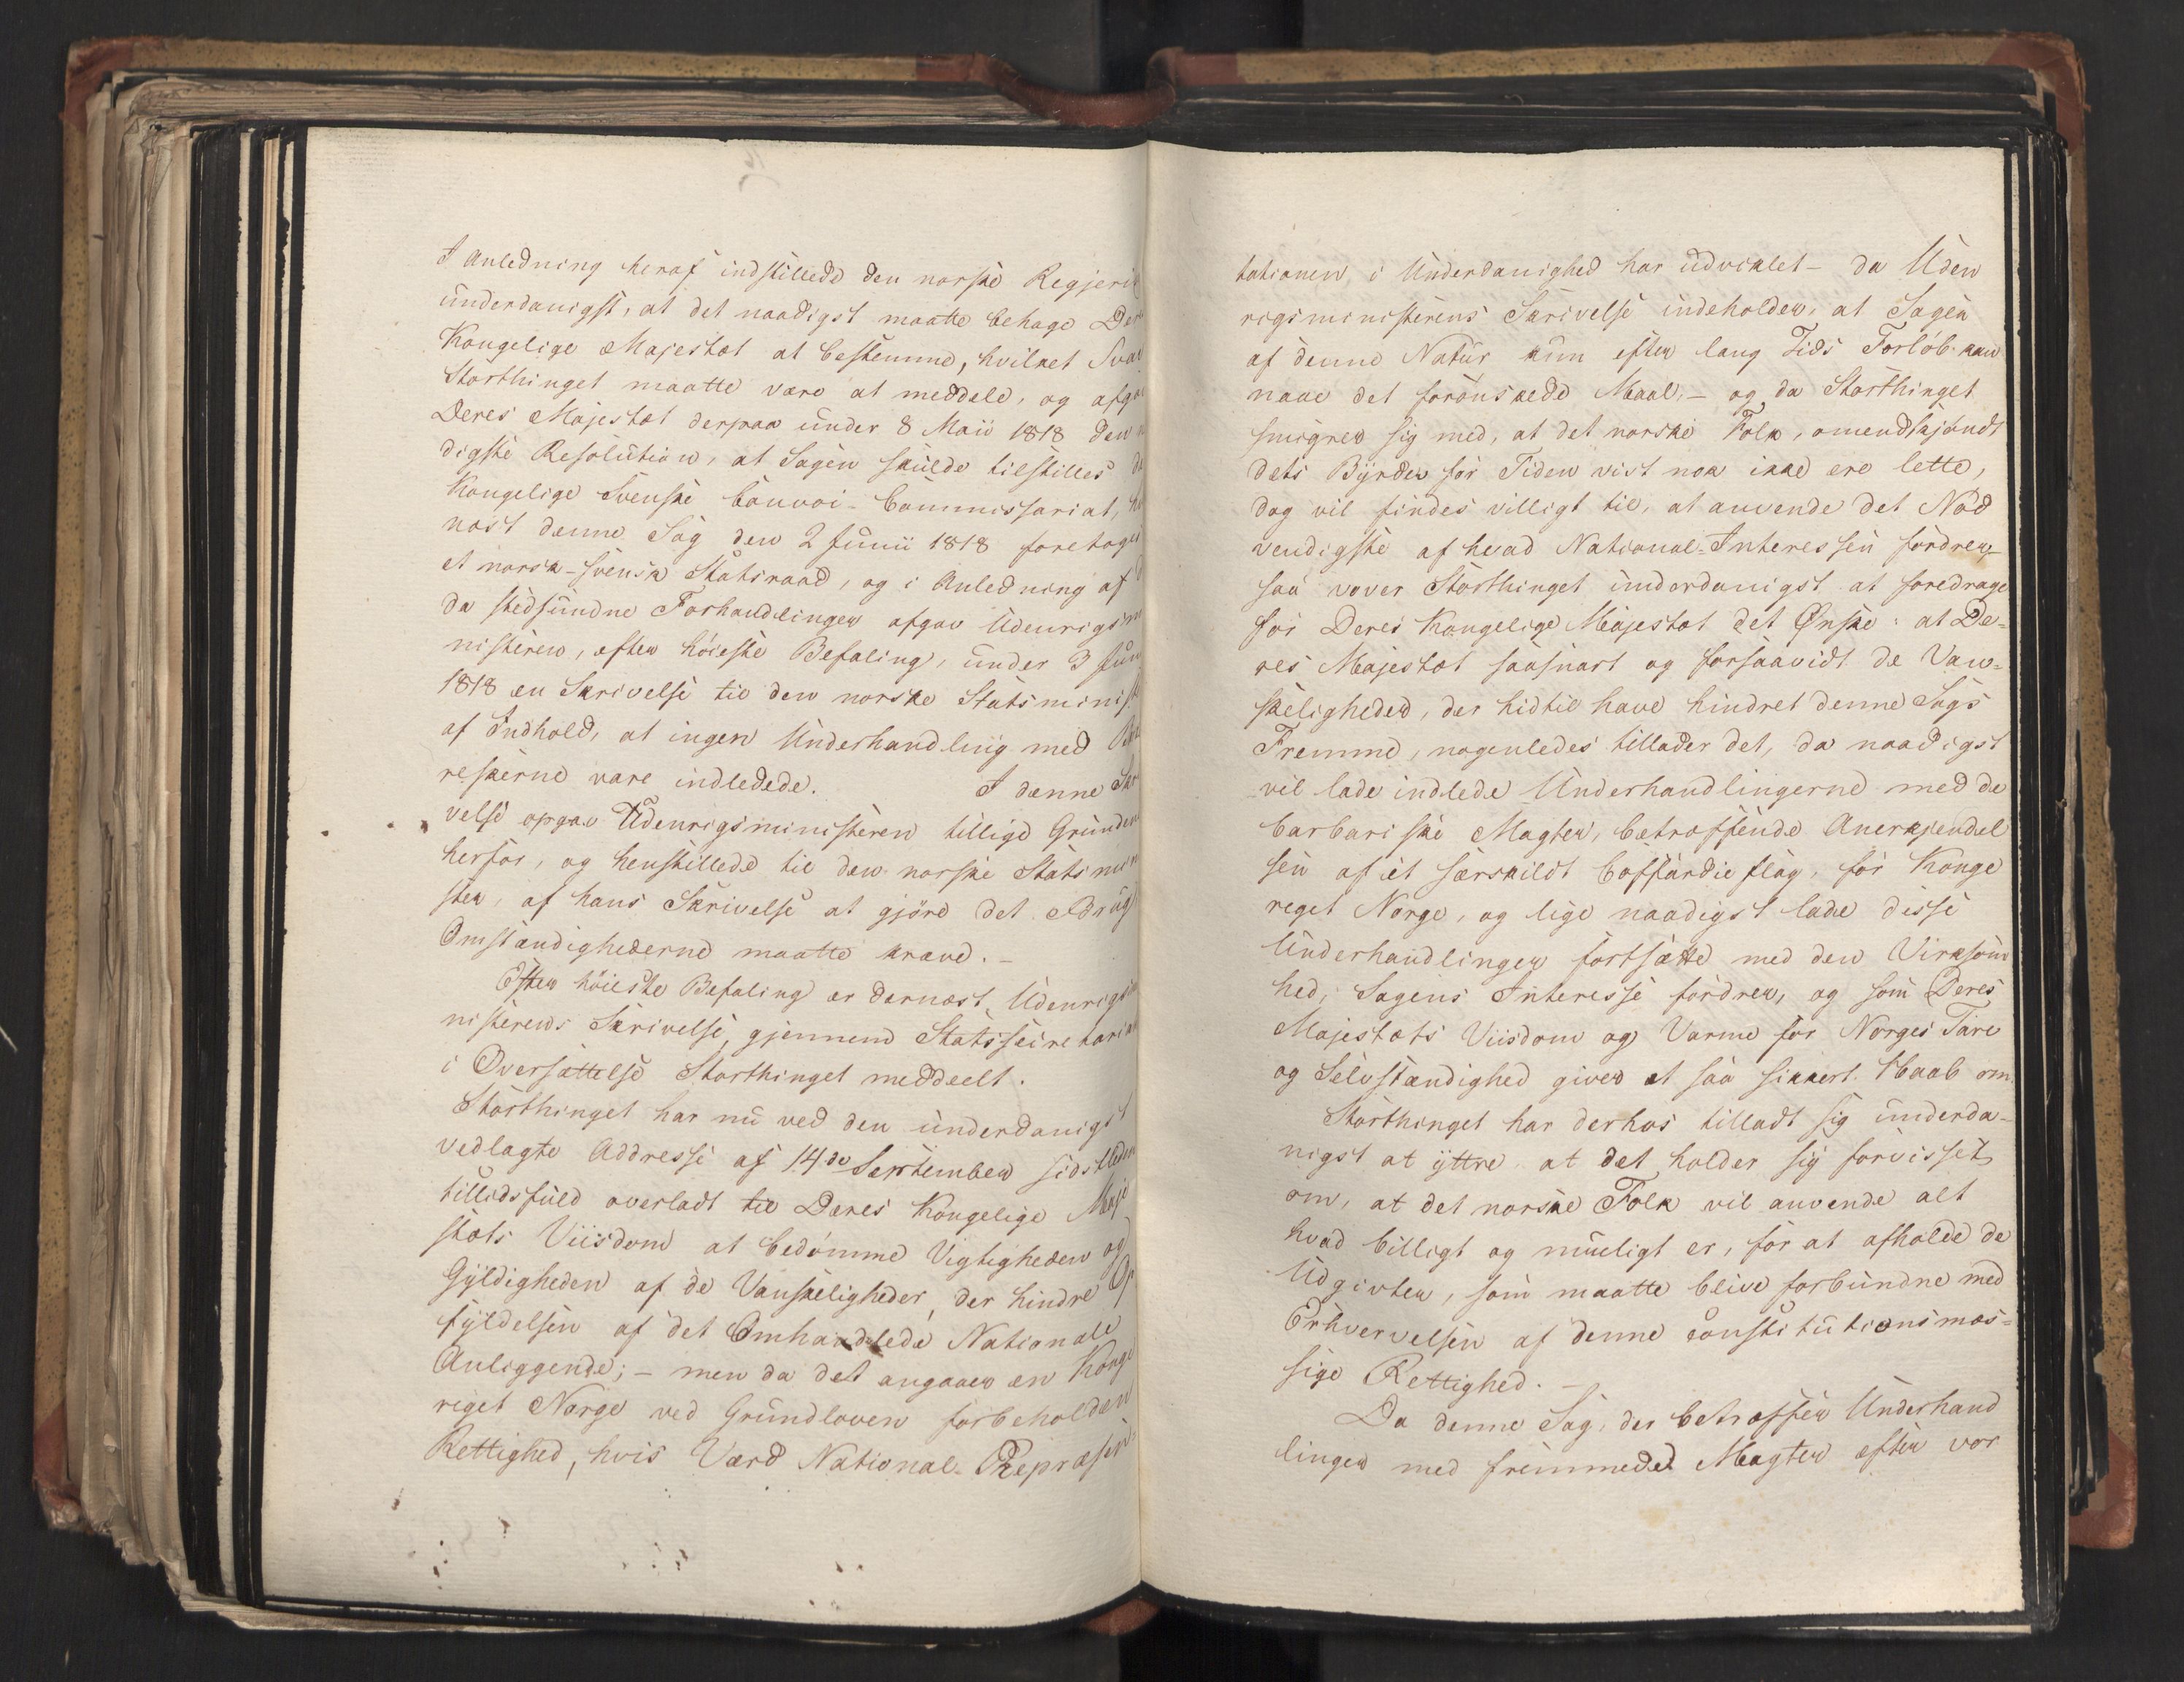 I Anledning heraf indstillede den norske Regjeri
underdanigst, at det naadigst maatte behage De
Kongelige Majestæt at bestemme, hvilket Sva
Storthinget maatte være at meddele, og afga
Deres Majestæt derpaa under 8 Maii 1818 den n
digste Resolution, at Sagen skulde tilstilles d
Kongelige Svenske Convoi-Commissariat, h
næst denne Sag den 2 Junii 1818 foretoges
et norsk-svensk Statsraad, og i Anledning af
da stedfundne Forhandlinger afgav Udenrigsm
nisteren, efter høieste Befaling, under 3 Jun
1818 en Skrivelse til den norske Statsminist
af Indhold, at ingen Underhandling med
reskerne vare indledede. I denne Skr
velse opgav Udenrigsministeren tillige Grunden
herfor, og henstillede til den norske Statsmin
ster, af hans Skrivelse at gjöre det Brug
Omstændighederne maatte kræve. -
Efter höieste Befaling er dernæst Udenrigsm
nisterens Skrivelse, gjennem Statssecretaria
i Oversættelse Storthinget meddeelt.
Storthinget har nu ved den underdanigst
vedlagte Addresse af 14de September sidstleden
tillidsfuld overladt til Deres Kongelige Maje
stæts Viisdom at bedömme Vigtigheden og
Gyldigheden af de Vanskeligheder, der hindre Op
fyldelsen af det Omhandlede Nationale
Anliggende; - men da det angaaer en Konge
riget Norge ved Grundloven forbeholden
Rettighed, hvis Værd National-Repræsen-
tationen, i Underdanighed har udviklet - da Uden
rigsministerens Skrivelse indeholder, at Sagen
af denne Natur, kun efter lang Tids Forlöb kan
naae det forönskede Maal, - og da Storthinget
smigrer sig med, at det norske Folk, omendskjöndt
dets Byrder for Tiden vist nok ikke ere lette,
dog vil findes villigt til, at anvende det Nöd
vendigste af hvad National-Interessen fordrer -
saa vover Storthinget underdanigst at foredrage
for Deres Kongelige Majestæt det Ønske: at De=
res Majestæt saasnart og forsaavidt de Van=
skeligheder, der hidtil have hindret denne Sags
Fremme, nogenledes tillader det, da naadigst
vil lade indlede Underhandlingerne med de
barbariske Magter, betræffende Anerkjendel
sen af et særskildt Coffardie flag, for Konge
riget Norge, og lige naadigst lade disse
Underhandlinger fortsætte med den Virksom
hed, Sagens Interesse fordrer, og som Deres
Majestæts Viisdom og Varme for Norges Tarv
og Selvstændighed giver et saa sikkert Haab om.
Storthinget har derhos tilladt sig underda-
nigst at yttre at det holder sig forvisset
om, at det norske Folk vil anvende alt
hvad billigt og mueligt er, for at afholde de
Udgivter, som maatte blive forbundne med
Erhvervelsen af denne constitutionsmæs=
sige Rettighed. -
Da denne Sag, der betræffer Underhand
linger med fremmede Magter efter vor